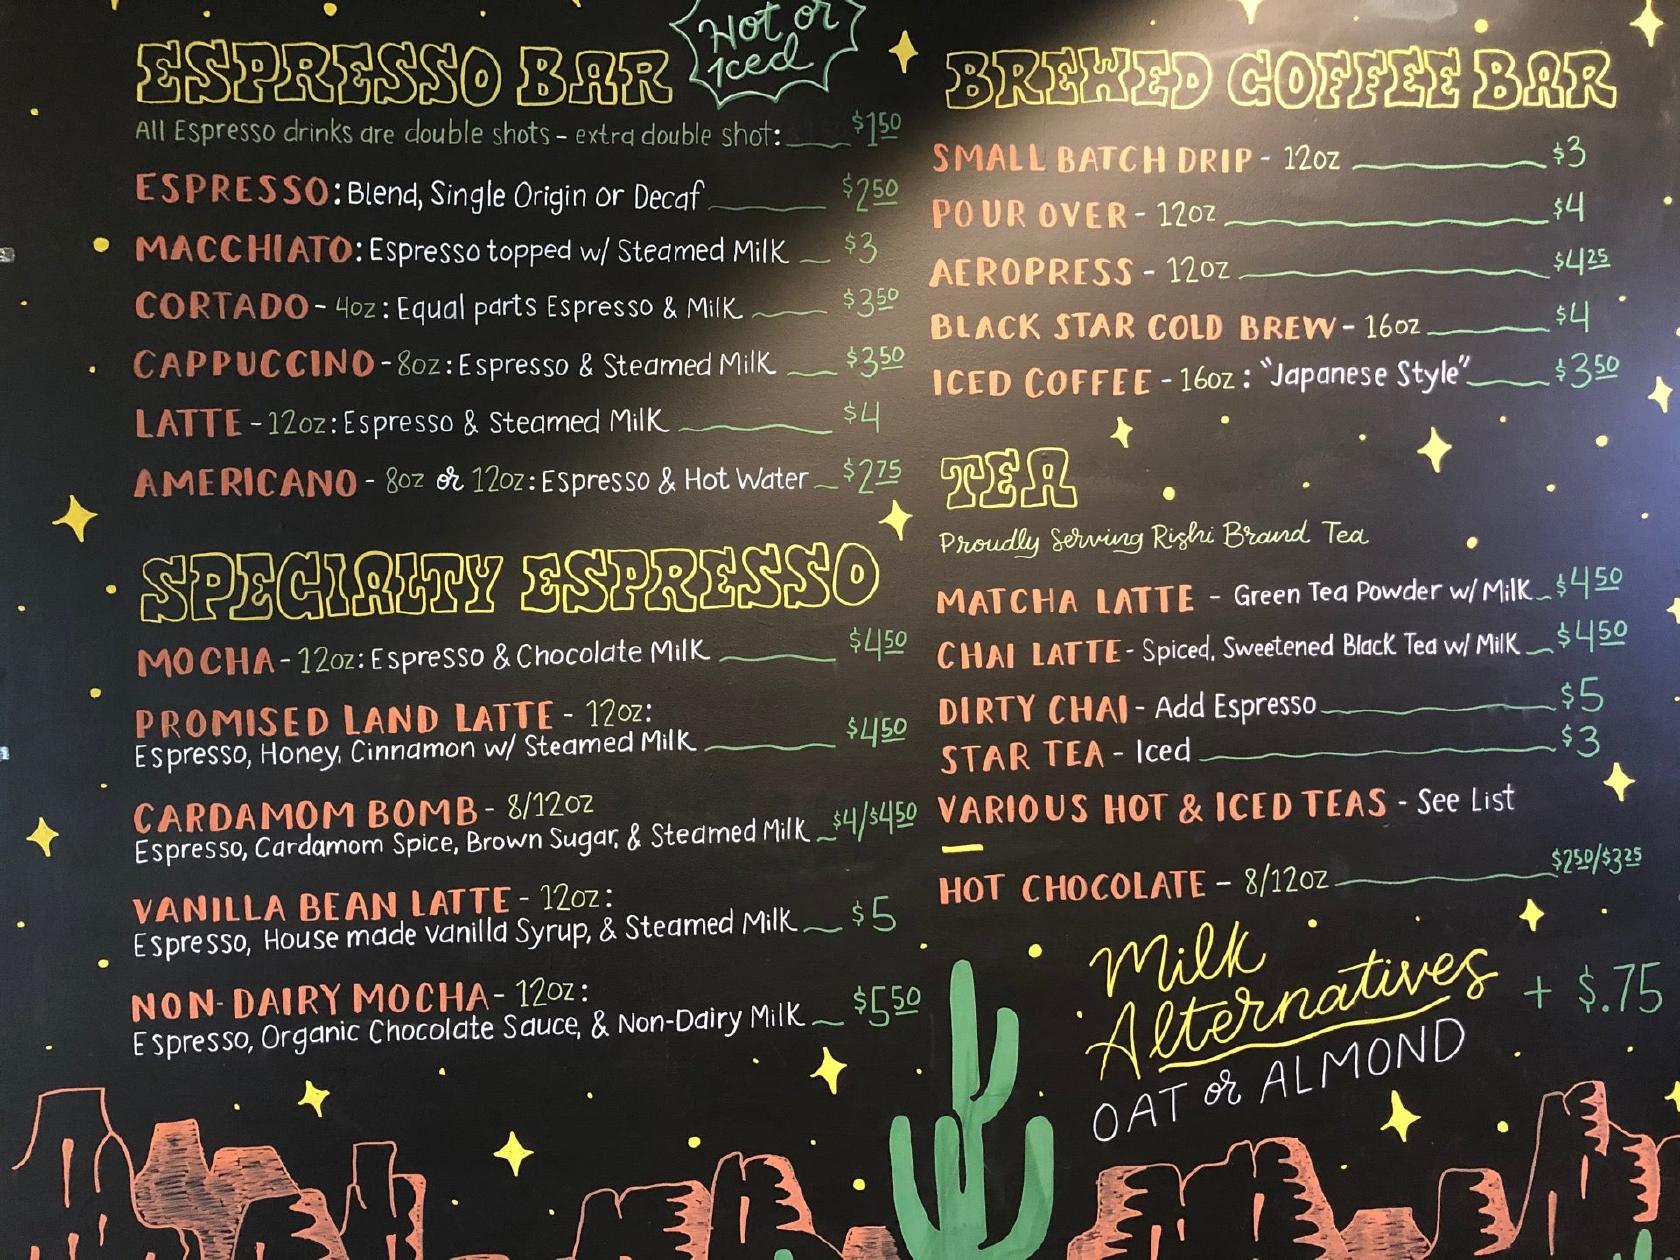 Hot or
Iced
ESPRESSO BAR
All Espresso drinks are double shots - extra double shot: $1.50
ESPRESSO: Blend, Single Origin or Decaf $2.50
MACCHIATO: Espresso topped w/ Steamed Milk $3
CORTADO - 4oz: Equal parts Espresso & Milk $3.50
CAPPUCCINO - 8oz: Espresso & Steamed Milk $3.50
LATTE - 12oz: Espresso & Steamed Milk $4
AMERICANO - 8oz or 12oz: Espresso & Hot Water $2.75
SPECIALTY ESPRESSO
MOCHA - 12oz: Espresso & Chocolate Milk $4.50
PROMISED LAND LATTE - 12oz:
Espresso, Honey, Cinnamon w/ Steamed Milk $4.50
CARDAMOM BOMB - 8/12oz
Espresso, Cardamom Spice, Brown Sugar, & Steamed Milk $4/$4.50
VANILLA BEAN LATTE - 12oz:
Espresso, House made vanilla Syrup, & Steamed Milk $5
NON-DAIRY MOCHA - 12oz:
Espresso, Organic Chocolate Sauce, & Non-Dairy Milk $5.50
BREWED COFFEE BAR
SMALL BATCH DRIP - 12oz $3
POUR OVER - 12oz $4
AEROPRESS - 12oz $4.25
BLACK STAR COLD BREW - 16oz $4
ICED COFFEE - 16oz: "Japanese Style" $3.50
TEA
Proudly Serving Rishi Brand Tea
MATCHA LATTE - Green Tea Powder w/ Milk $4.50
CHAI LATTE - Spiced, Sweetened Black Tea w/ Milk $4.50
DIRTY CHAI - Add Espresso $5
STAR TEA - Iced $3
VARIOUS HOT & ICED TEAS - See List
HOT CHOCOLATE - 8/12oz $2.50/$3.25
Milk
Alternatives + $.75
OAT or ALMOND